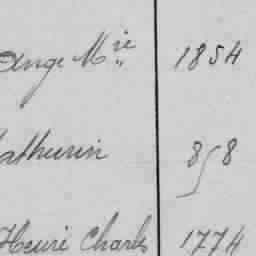 Ange Mie 1854
athurin 858
Henri Charles 1774